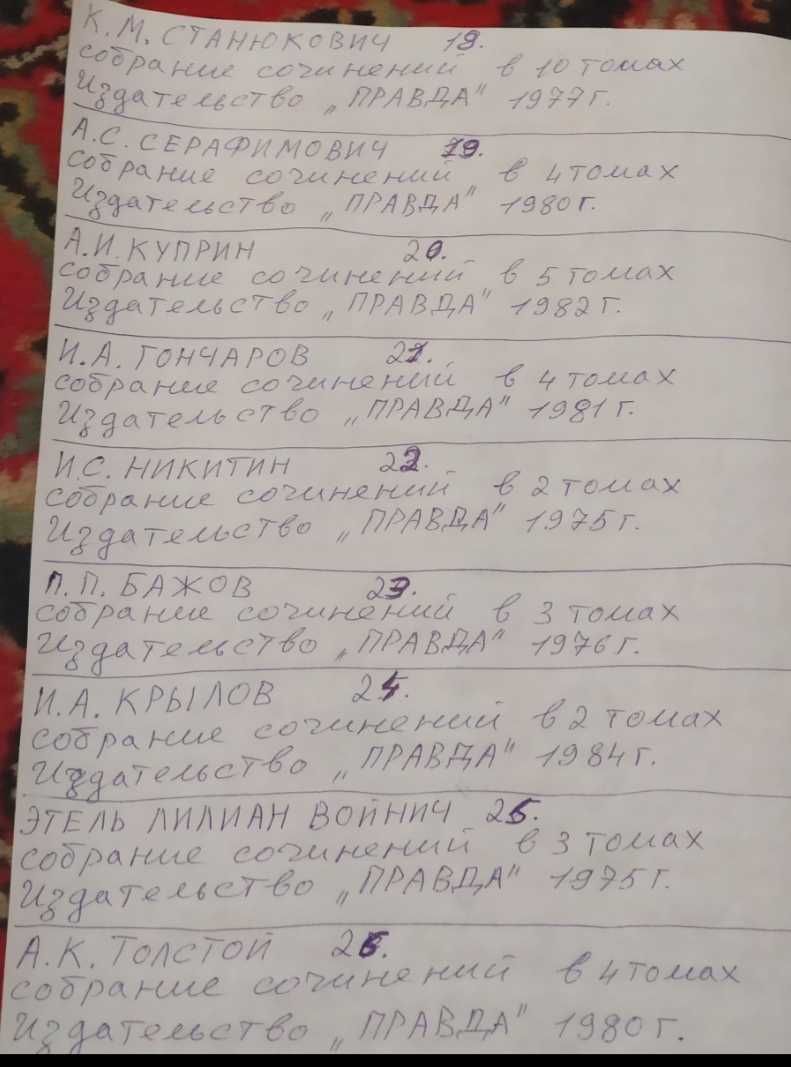 К. М. СТАНЮКОВИЧ 18.
собрание сочинений в 10 томах
Издательство „ПРАВДА" 1977 г.
А. С. СЕРАФИМОВИЧ 19.
собрание сочинений в 4 томах
Издательство „ПРАВДА" 1980 г.
А. И. КУПРИН 20.
собрание сочинений в 5 томах
Издательство „ПРАВДА" 1982 г.
И. А. ГОНЧАРОВ 21.
собрание сочинений в 4 томах
Издательство „ПРАВДА" 1981 г.
И. С. НИКИТИН 22.
собрание сочинений в 2 томах
Издательство „ПРАВДА" 1975 г.
П. П. БАЖОВ 23.
собрание сочинений в 3 томах
Издательство „ПРАВДА" 1976 г.
И. А. КРЫЛОВ 24.
собрание сочинений в 2 томах
Издательство „ПРАВДА" 1984 г.
ЭТЕЛЬ ЛИЛИАН ВОЙНИЧ 25.
собрание сочинений в 3 томах
Издательство „ПРАВДА" 1975 г.
А. К. ТОЛСТОЙ 26.
собрание сочинений в 4 томах
Издательство „ПРАВДА" 1980 г.